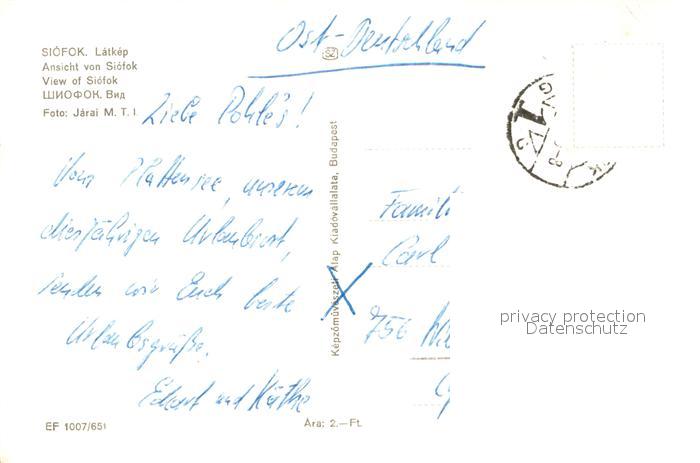 Ost-Deutschland
SIÓFOK. Látkép
Ansicht von Siófok
View of Siófok
ШИОФОК. Вид
Foto: Járai M. T. I.
Liebe Pohle's!
Vom Plattensee, unserem
diesjährigen Urlaubsort,
senden wir Euch beste
Urlaubsgrüße.
Eckart und Käthe
EF 1007/651
Ára: 2.—Ft.
Képzőművészeti Alap Kiadóvállalata, Budapest
Famili
Carl
756
privacy protection
Datenschutz